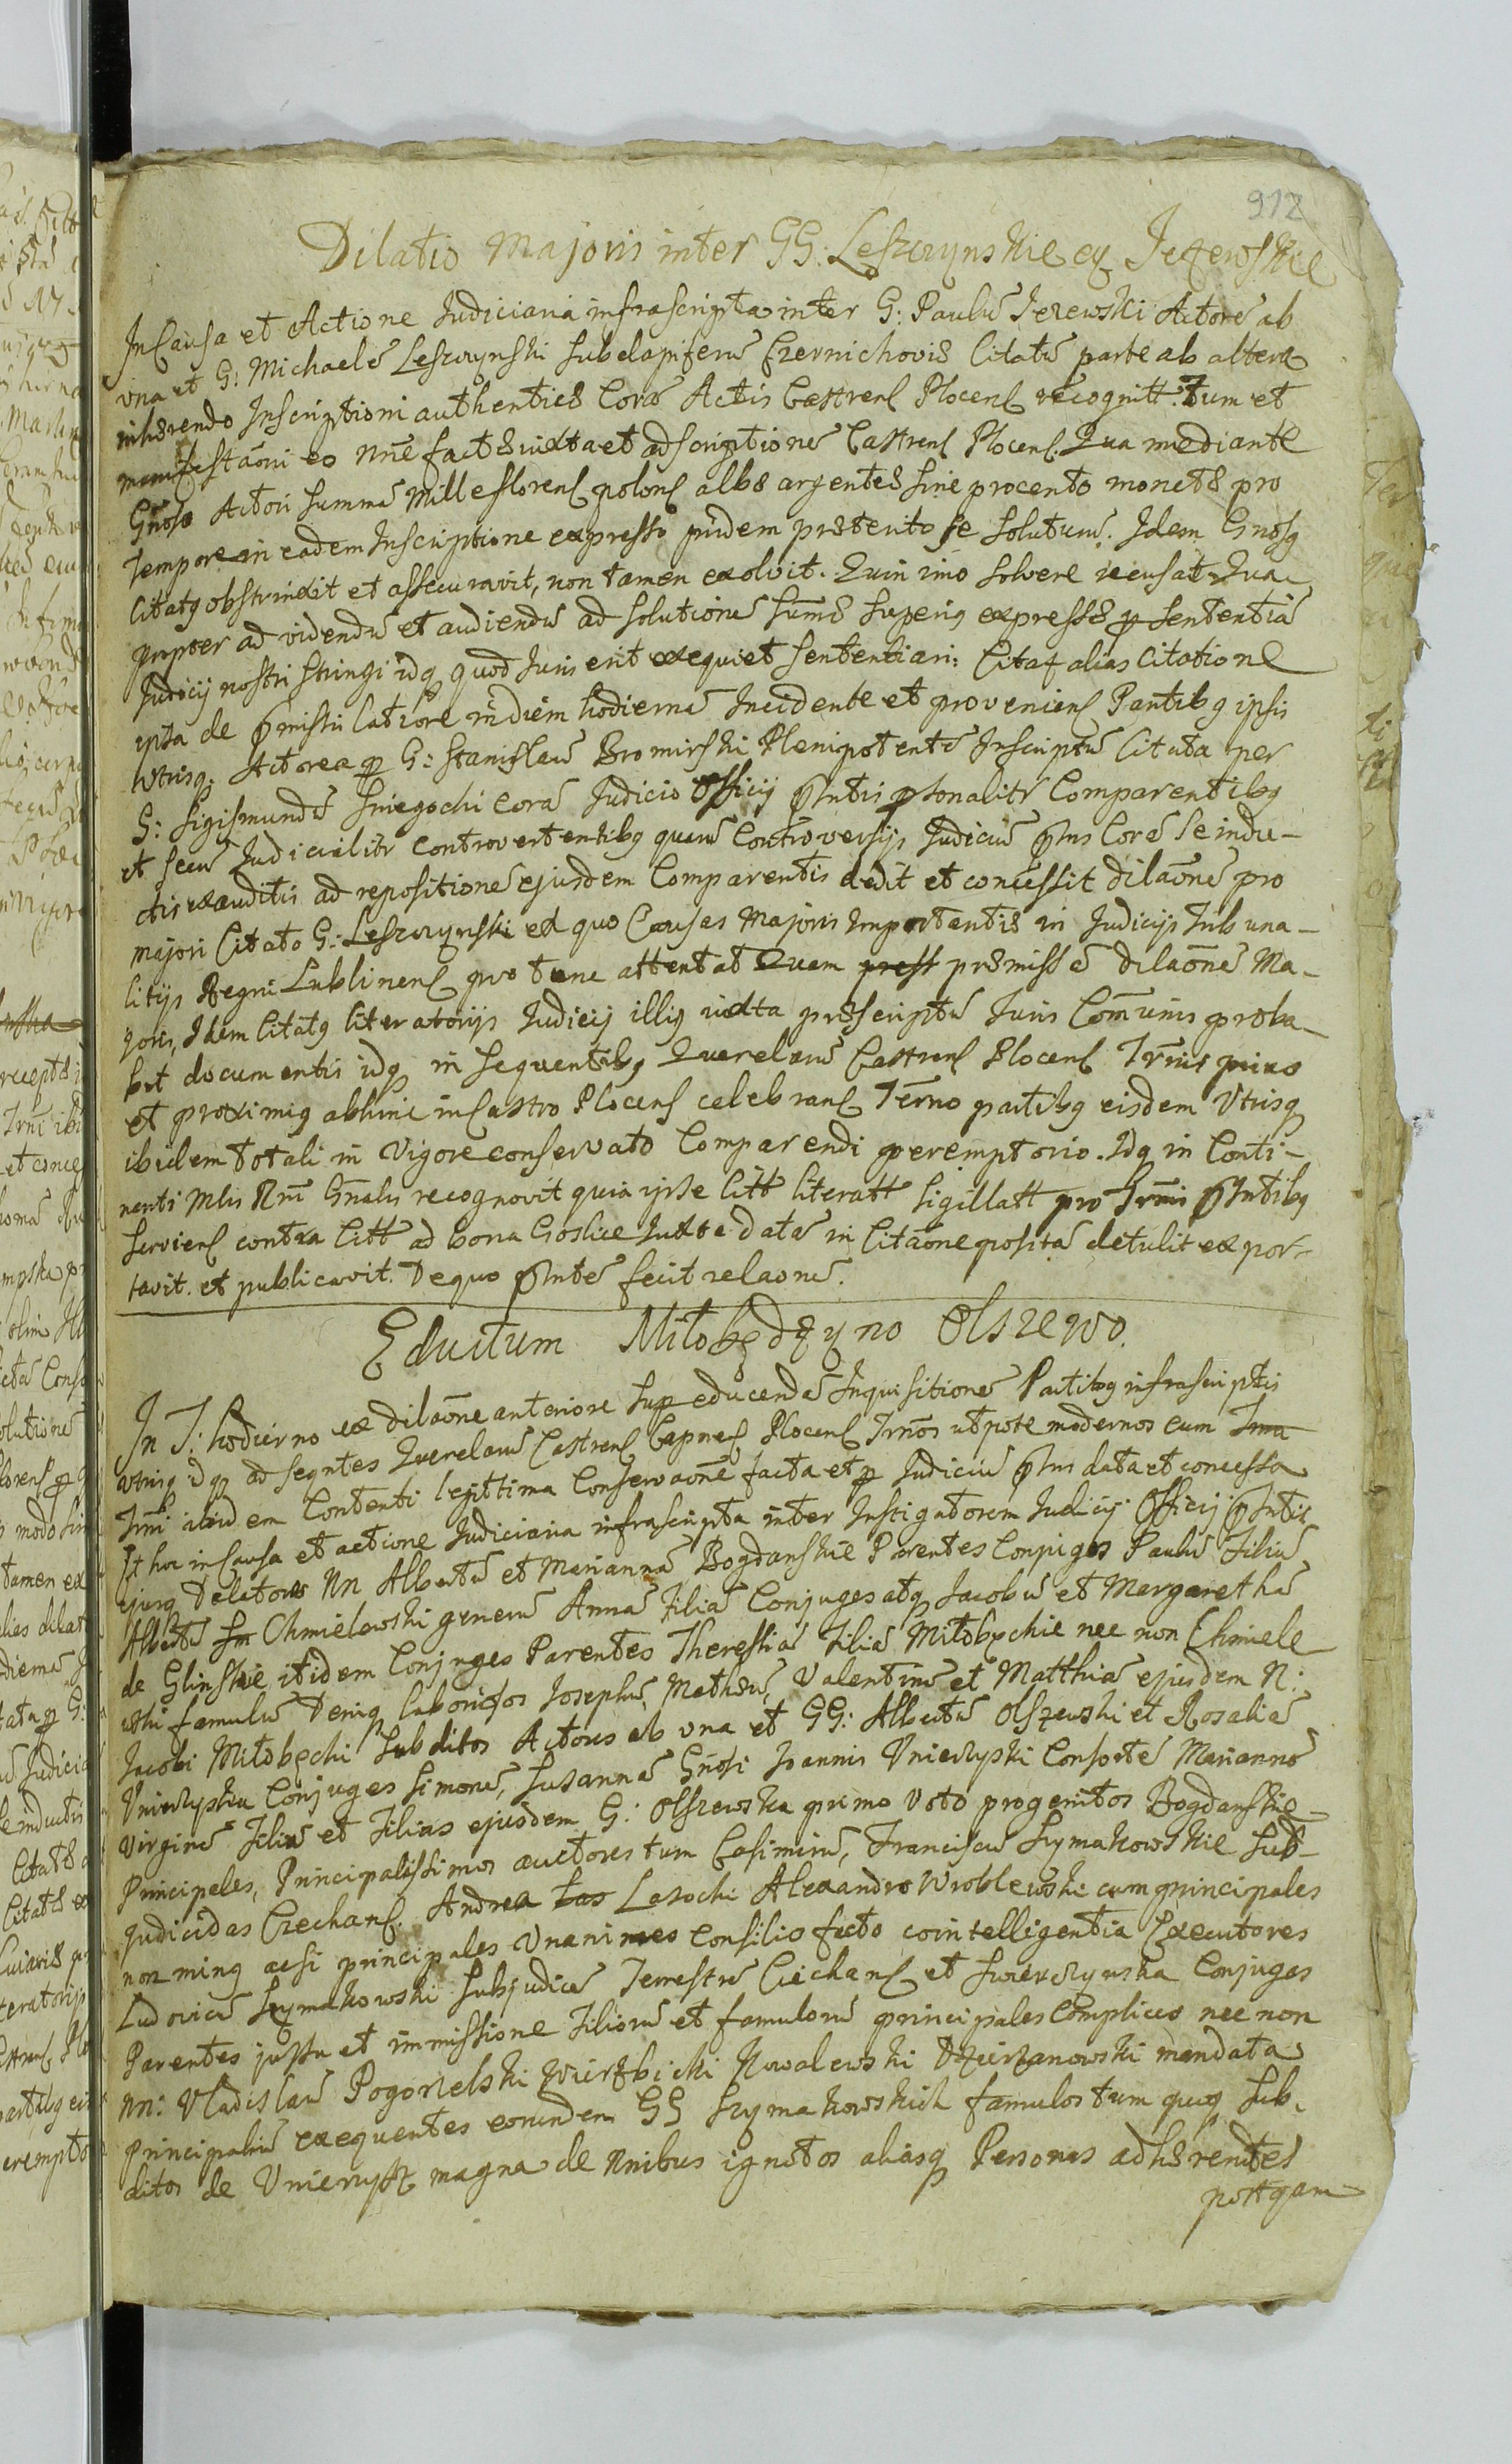 912
Dilatio Majoris inter GG: Leszczynskie et Jezewskie
In Causa et Actione Judiciaria infrascripta inter G: Paulũ Jezewski Actorẽ ab
vna et G: Michaelẽ Leszczynski Subdapiferũ Czernichoviẽ Citatũ parte ab altera
inhærendo Inscriptioni authenticæ Corã Actis Castrens Plocens recognitt: Tum et
manifestãoni eo nñe factæ iuxta et adscriptionẽ Castrens Plocens. Qua mediante
Gñoso Actori Summã Mille florens polons albæ argenteæ sine procento monetæ pro
tempore in eadem Inscriptione expresso pridem præterito se soluturũ. Idem Gnosq
Citatq obstrinxit et assecuravit, non tamen exolvit. Quin imo solvere recusat. Qua
propter ad videndũ et audiendũ ad solutionẽ Sum̃æ superiq expressæ p sententiã
Judicij nostri stringi idq quod Juris erit exequi et sententiari: Citaf alias Citatione
ipsa de pmissi latiore in diem hodiernã Incidente et proveniens Partibq ipsis
Vtrisq. Actorea p G: Stanislaũ Bromirski Plenipotentẽ Inscriptũ Citata per
G: Sigismundũ Sniegocki corã Judicio Officij pntis psonalitr Comparentibq
et secũ Judicialitr controvertentibq quarũ Controversijs Judiciũ pns Corã se indu-
ctis exauditis ad repositionẽ ejusdem Comparentis dedit et concessit dilãonẽ pro
majori Citato G: Leszczynski ex quo Causas Majoris Importantiæ in Judicijs Tribuna-
litijs Regni Lublinens pro tunc attentat Quam præmissẽ dilãonẽ Ma-
joris, Idem Citatq literatorijs Judicij illiq iuxta præscriptũ Juris Com̃unis proba-
bit documentis idq in sequentibq Querelarũ Castrens Plocens Trm̃is
et proximiq abhinc in Castro Plocens celebrans Ter̃no partibq eisdem Vtrisq
ibidem totali in Vigore conservato Comparendi peremptorio. Idq in Conti-
nenti Mlis Rm̃ Gñalis recognovit quia ipse litt literatt sigillatt pro Trm̃is pntibq
serviens contra litt ad bona Goslice Juxta datã in Citãone positã detulit expor-
tavit. et publicavit. De quo pntẽ fecit relaonẽ.
Eductum Miłobędzyno Olszewo.
In T: hodierno ex dilãone anteriore Sup educendã Inquisitionẽ Partibq infrascriptis
vtrisq idq ad seqntes Querelarũ Castrens Plocens Trm̃os utpote modernos cum
Trm̃i ibidem Contenti legittima Conservaone facta et p Judiciũ pns data et concessa
Et hoc in Causa et actione Judiciaria infrascripta inter Instigatorem Judicij Officij pntis
ejusq Delatores NN Albertũ et Mariannã Bogdanskie Parentes Conjuges Paulũ Filiũ
Albertũ Chmielewski generũ Annã Filiã Conjuges atq Jacobũ et Margarethã
de Glinskie itidem Conjuges Parentes Theressiã Filiã Miłobęckie nec non Chmiele
wski famulũ Deniq laboriosos Josephũ, Mathæũ, Valentinũ et Matthiã ejusdem N:
Jacobi Miłobęcki Subditos Actores ab vna et GG: Albertũ Olszewski et Rosaliã
Conjuges Simonẽ, Susannã Gñosi Joannis Consortẽ Mariannã
Virginẽ Filiũ et Filias ejusdem G: Olszewska primo Voto progenitos Bogdanskie
Principales, Principalissimos auctores tum Casimirũ, Franciscũ Szymakowskie Sub-
Judicidas Czechans. Andrea Lasocki Alexandro Wroblewski cum principales
non minq acsi principales Vnanimes Consilio facto cointelligentia Executores
Ludovicũ Szymakowski Subjudicẽ Terrestrẽ Ciechans et Swierczynska Conjuges
Parentes jussu et immissione Filiorũ et famulorũ principales Complices nec non
NN: Vladislaũ Pogorzelski Wierzbicki Kowalewski Dzierzanowski mandata
Principaliũ exequentes eorundem GG Szymakowskich famulos tum quoq Sub-
ditos de magna de Nnibus ignotos aliasq Personas adhærentes
postqam